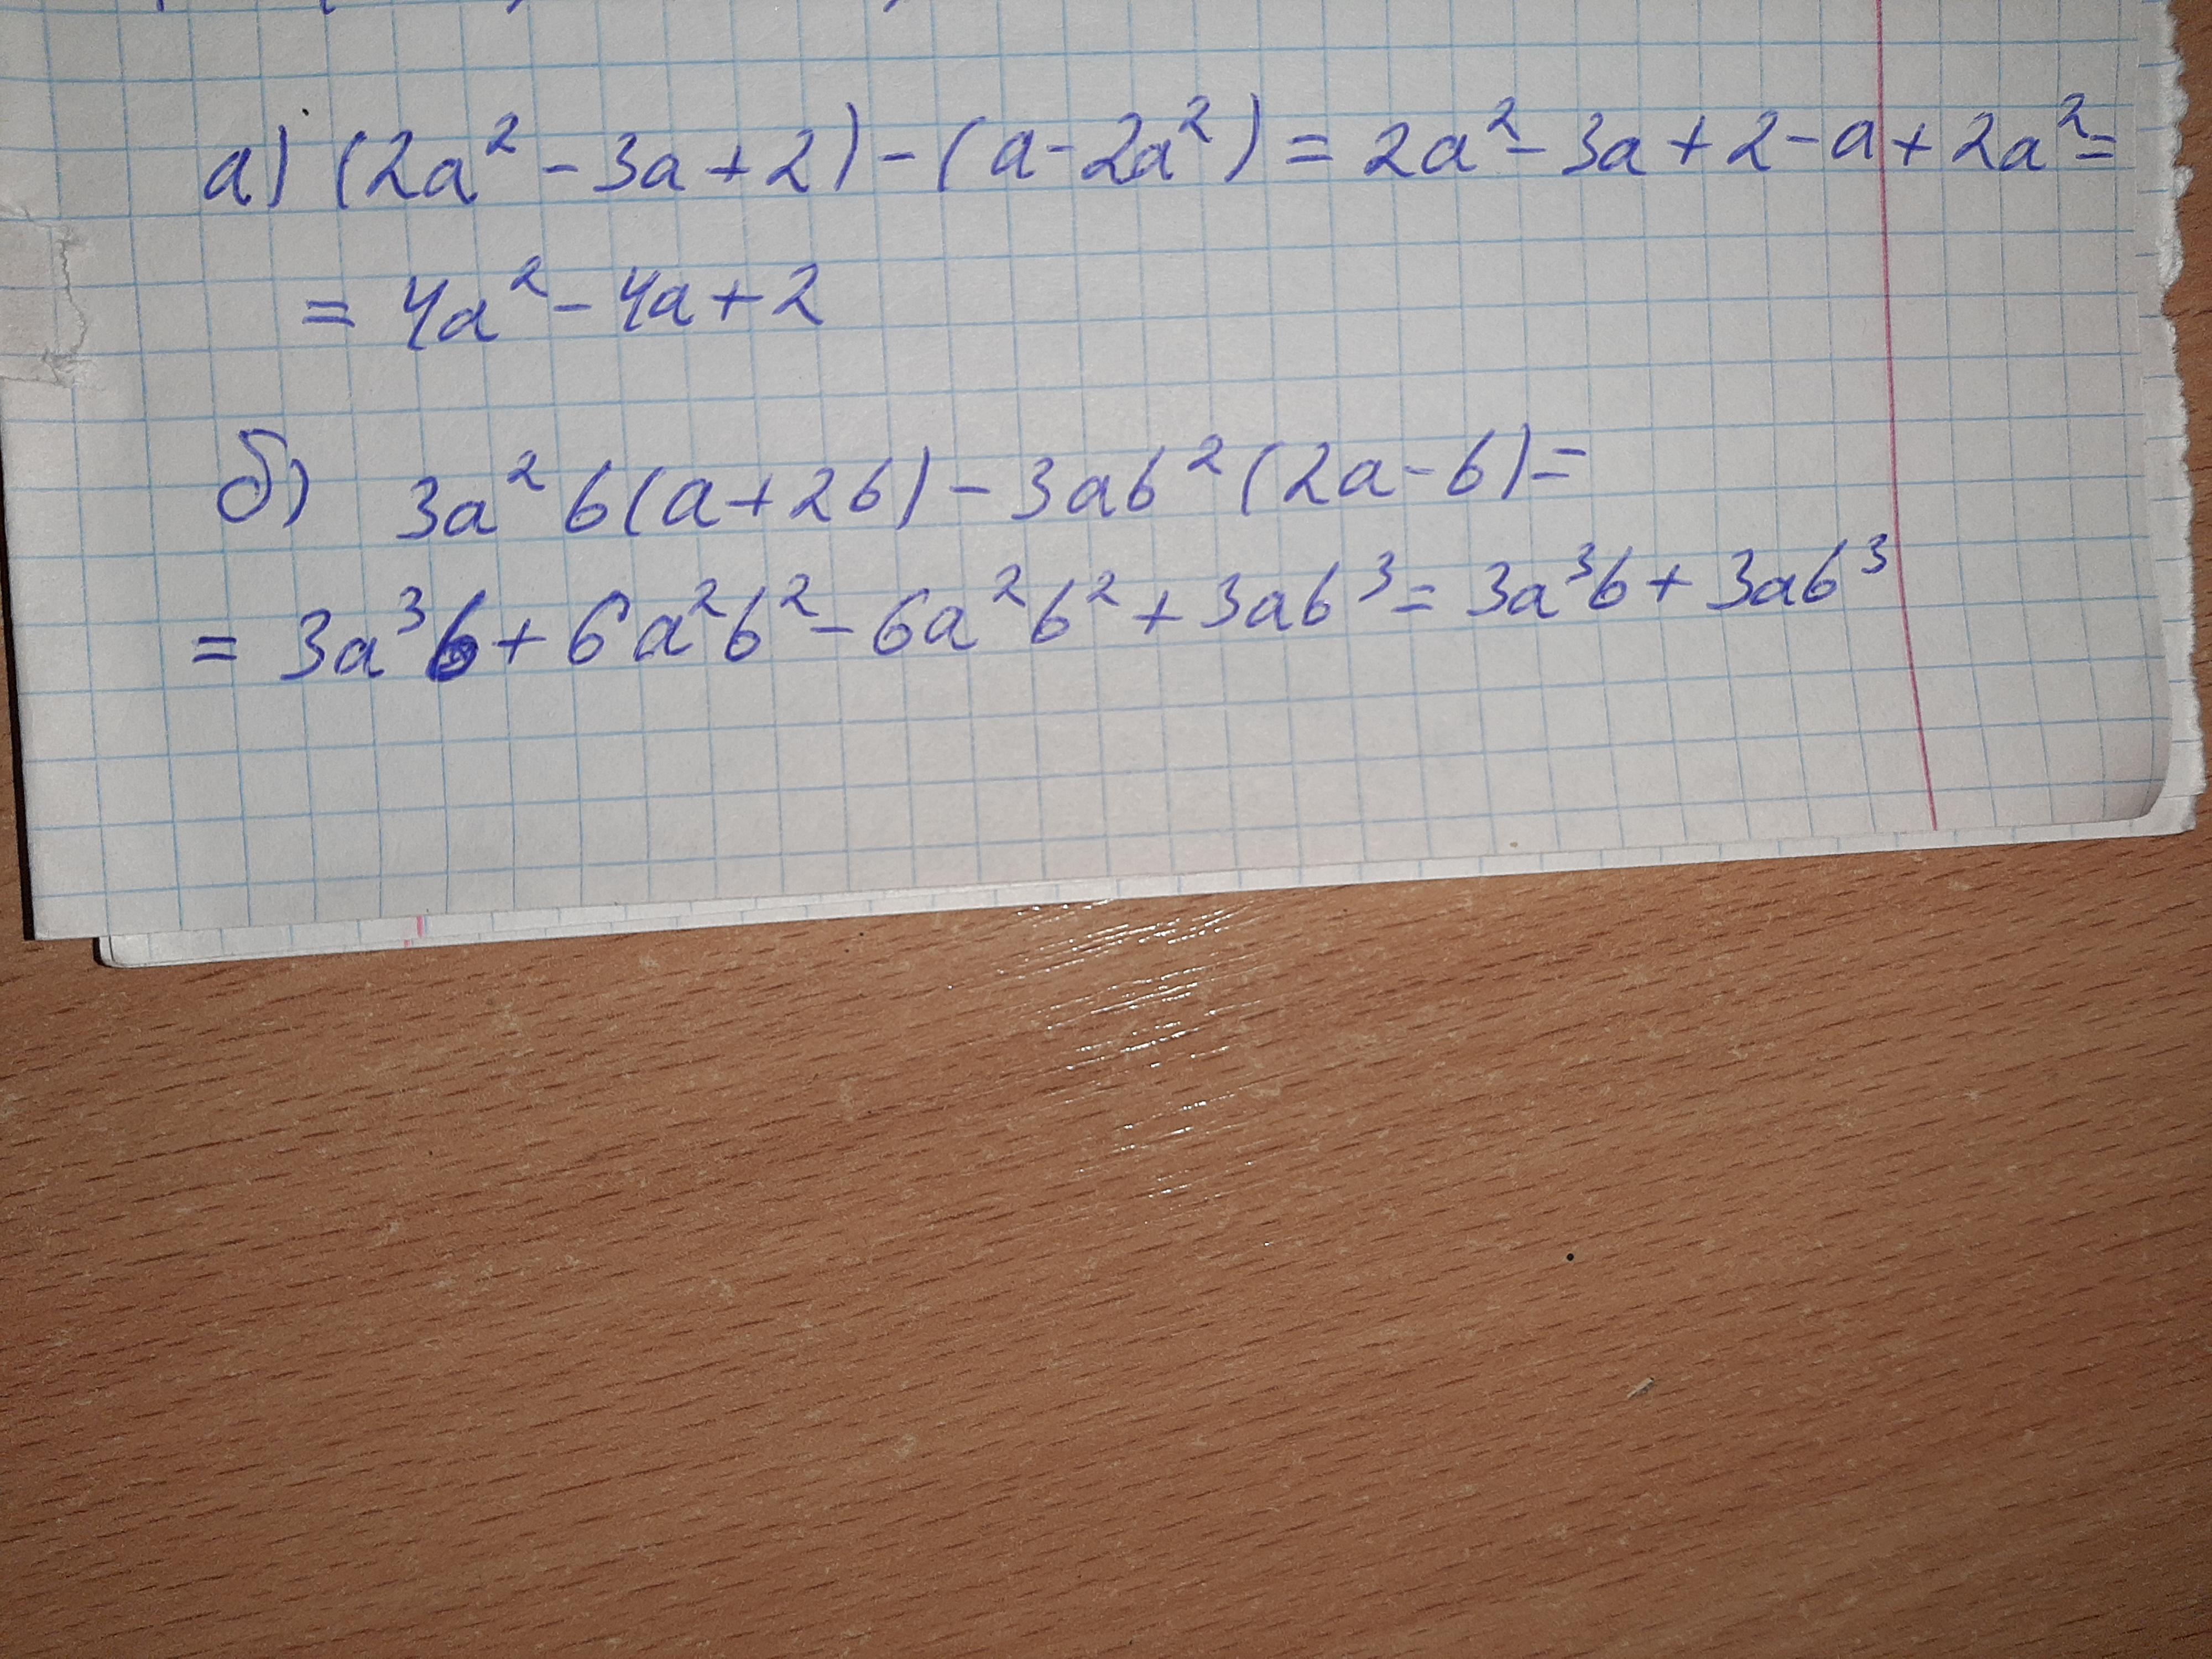 а) (2a² - 3a + 2) - (a - 2a²) = 2a² - 3a + 2 - a + 2a² =
= 4a² - 4a + 2
б) 3a²b(a + 2b) - 3ab²(2a - b) =
= 3a³b + 6a²b² - 6a²b² + 3ab³ = 3a³b + 3ab³